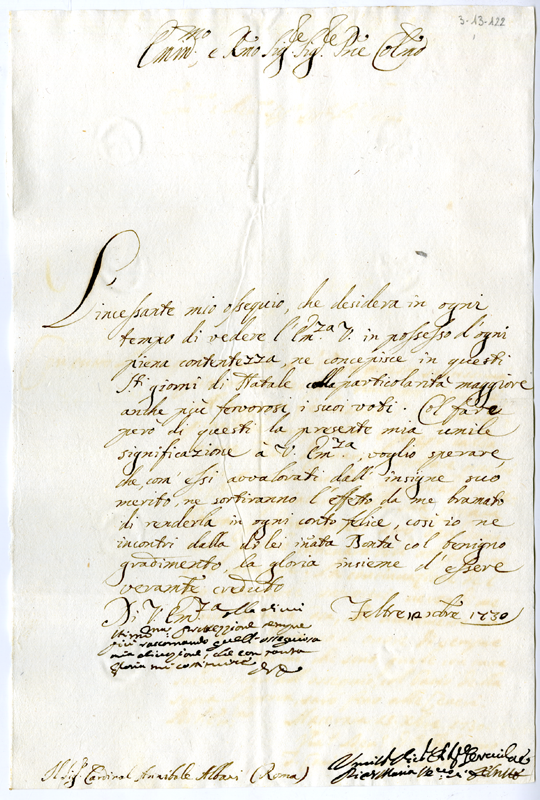 3-13-122
Emin.mo e Rmo Sig.re Sig.re Prne Colmo
L'incessante mio ossequio, che desidera in ogni
tempo di vedere l'Em.za V. in possesso d'ogni
piena contentezza, ne concepisce in questi
Sti giorni di Natale colla particolarità maggiore
anche più fervorosi i suoi voti. Col fare
però di questi la presente mia umile
significazione à V. Em.za, voglio sperare,
che com'essi avvalorati dall'insigne suo
merito, ne sortiranno l'effetto da me bramato
di renderla in ogni conto felice, così io ne
incontri dalla di lei inata Bontà col benigno
gradimento, la gloria insieme d'essere
verante creduto
Di V. Em.za alla di cui Feltre Xbre 1730
protezione sempre
più raccomando quell'ossequiosa
mia divozione, che con tanta
gloria mi costituisce
Il Sig.r Cardinal Annibale Albani (Roma)
Pier Maria